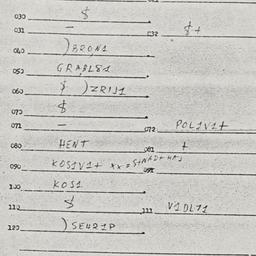 030 $
031 — 032 $ +
040 )BRON1
050 GRABL81
060 $ )ZRIJ1
070 $
071 — 072 POL1V1+
080 HENT 081 +
090 KOS1V1+ xx =
100 KOS1
110 $ 111 V1DL71
120 )SEU21P